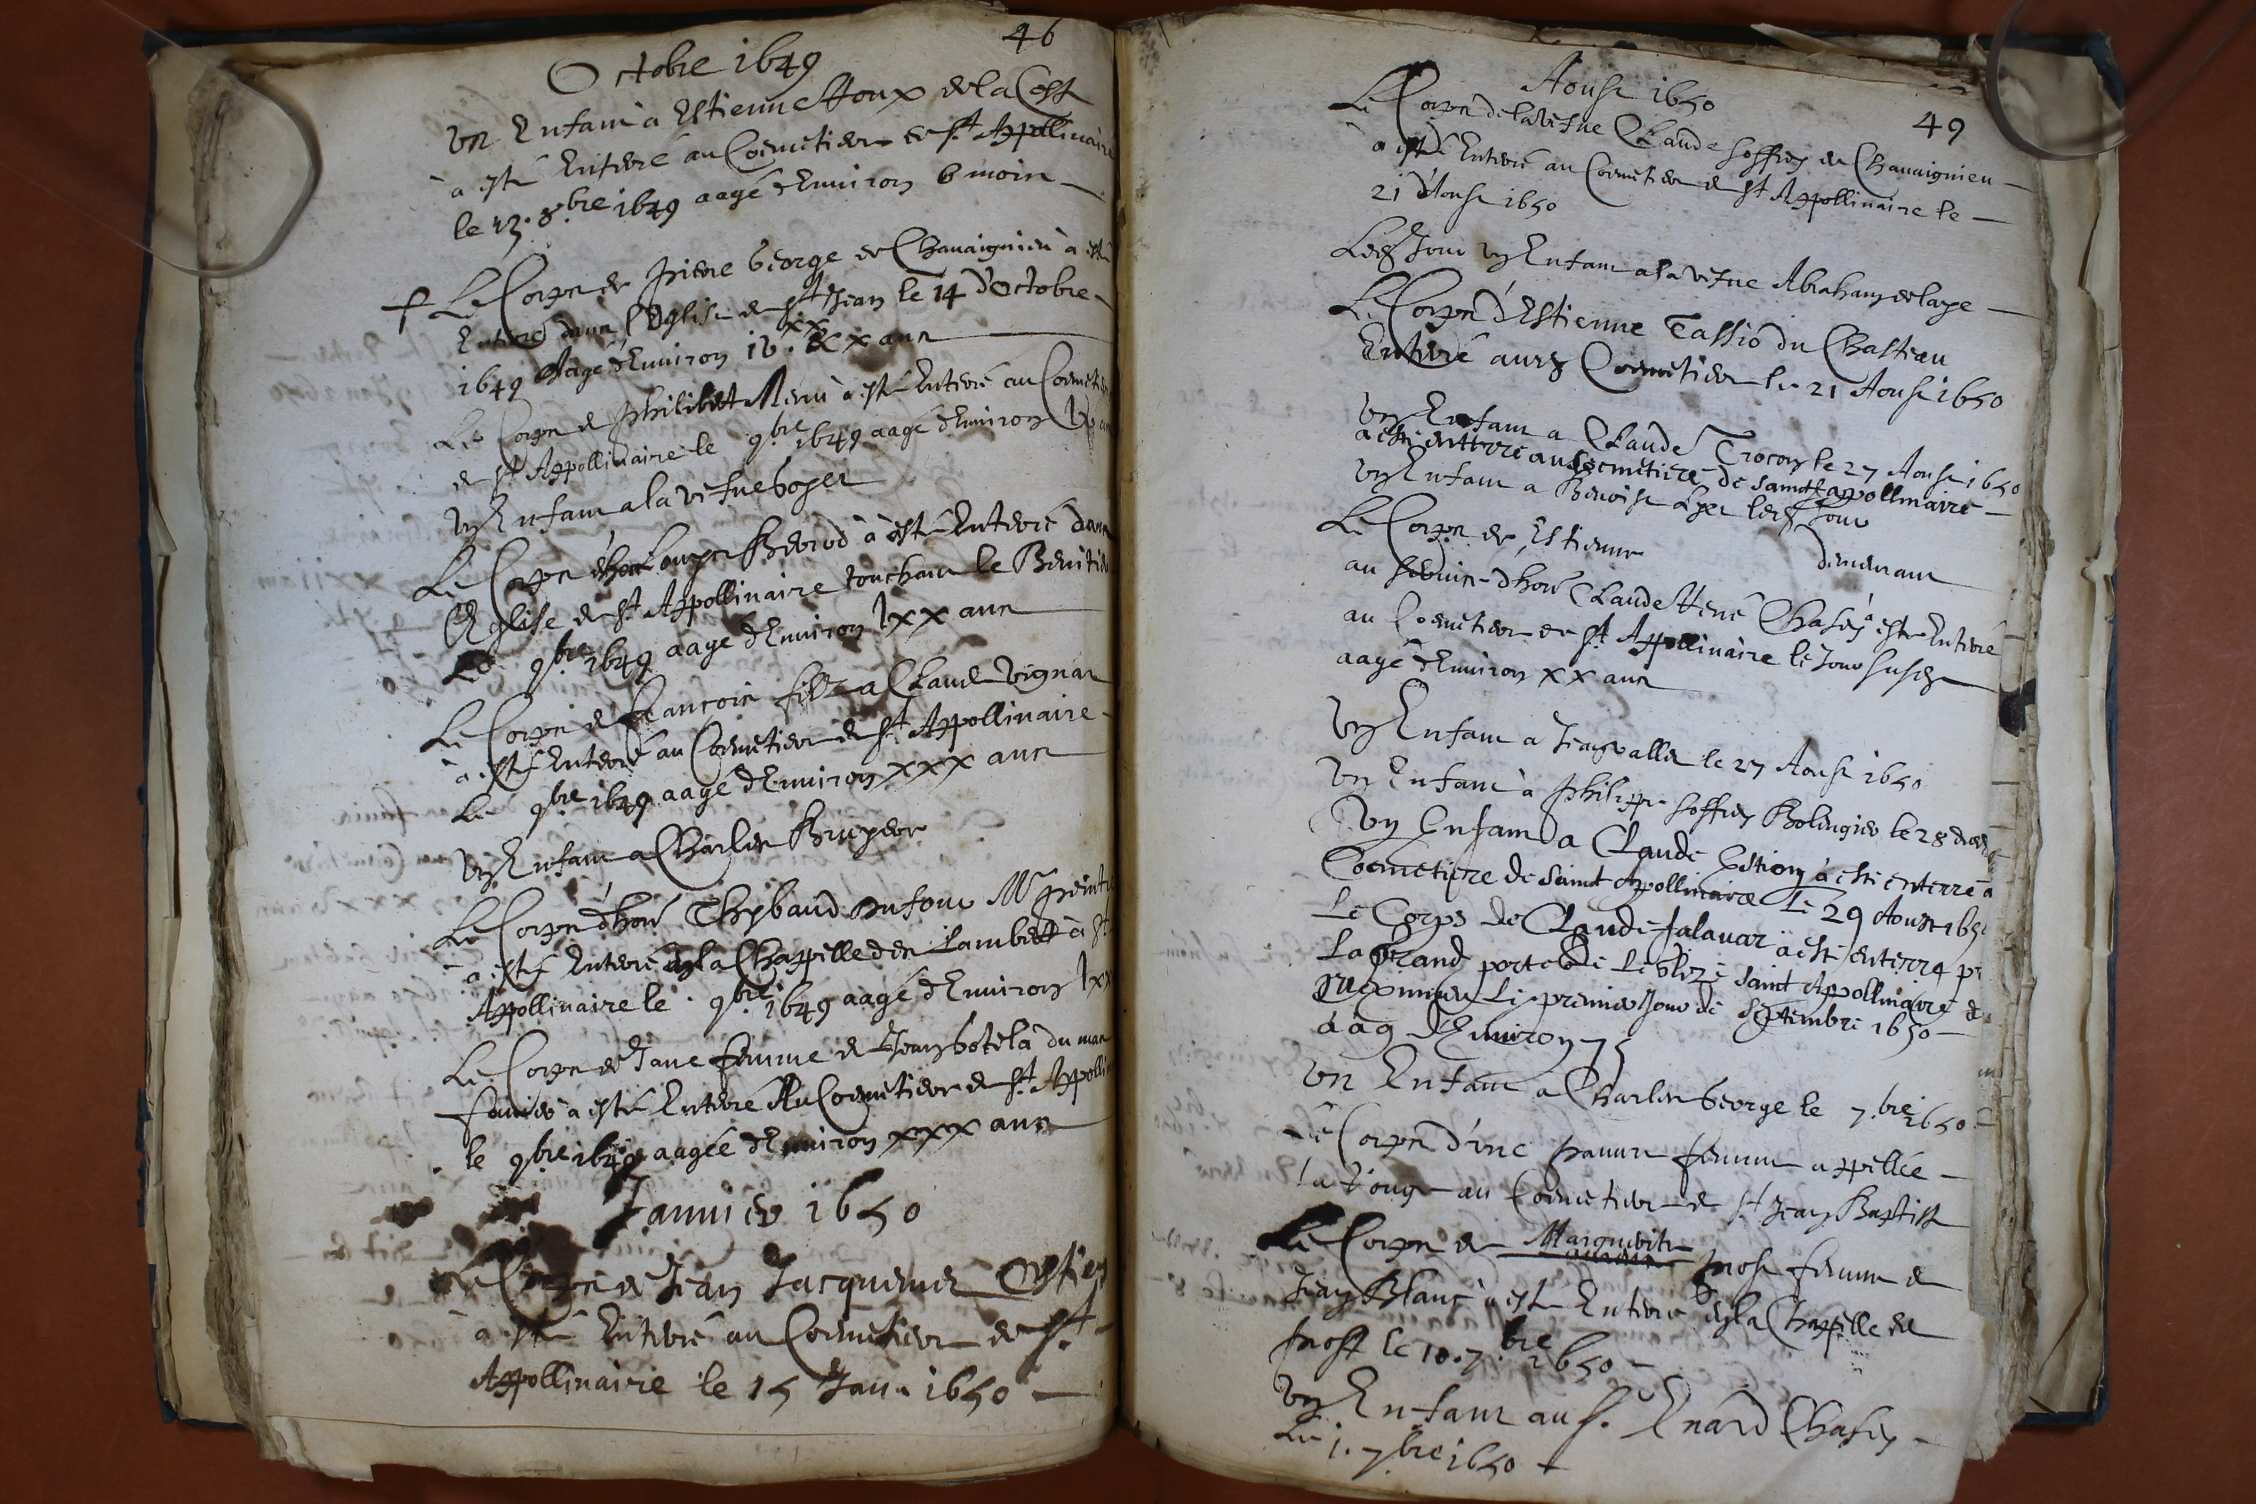 46
Octobre 1649
Un Enfant à Estienne Houx de la Cost
à esté Enterré au Coemetiere de St Appollinaire
le 13. 8.bre 1649 aagé d'Environ 6 mois
Le Corps de Pierre George de Chavaignieu à esté
Enterré dans l'Eglise de St Jean le 14 d'Octobre
1649 Aagé d'Environ
Le Corps de Philibert à esté Enterré au Coemetiere
de St Appollinaire le 9.bre 1649 aagé d'Environ
Un Enfant a la vefve boyer
Le Corps Loupe à esté Enterré dans
l'Eglise de St Appollinaire touchant le Benitier
Le 9bre 1649 aagé d'Environ lxx ans
Le Corps de françois filz a Claude vignat
à esté Enterré au Coemetiere de St Appollinaire
Le 9bre 1649 aagé d'Environ xxx ans
Un Enfant a Charles Bruyere
Le Corps d'hon Thybaud Dufour Mr peintre
à esté Enterré en la Chappelle des Lambert à St
Appollinaire le . 9bre 1649 aagé d'Environ lxx
Le Corps de Jane femme de Jean botela du
à esté Enterré Au Coemetiere de St Appolli
le 9bre 1649 aagée d'Environ xxx ans
Janvier 1650
Le Corps de Jean Jacquemet
à esté Enterré au Coemetiere de St
Appollinaire le 15 Janv 1650
Aoust 1650
49
Le Corps de la vefve Claude Joffrey de Chavaignieu
a esté Enterré au Coemetiere de St Appollinaire le
21 d'Aoust 1650
Led Jour un Enfant a la vefve Abraham delaye
Le Corps d'Estienne Tassio du Chasteau
Enterré aud Coemetiere le 21 Aoust 1650
Un Enfant a Claude Trocon le 27 Aoust 1650
a esté entterré au Coemetiere de Saint appollinaire
Un Enfant a Benoist led Jour
Le Corps de Estienne demeurant
au service d'hon Claude Hené à esté Enterré
au Coemetiere de St Appollinaire le Jour susd
aagé d'Environ xx ans
Un Enfant a Jean valla le 27 Aoust 1650
Un Enfant à Philippe Joffrey Bolengier le 28
Un Enfant a Claude Estion à esté enterré a
Coemetiere de Saint Apollinaire Le 29 Aoust 165
Le Corps de Claude Jalavar a esté enterré p
La Grand porte de Saint Appollinaire
Le premier Jour de Septembre 1650
aag d'Environ 75
Un Enfant a Charles George le 7.bre 1650
Le Corps d'une pauvre femme appellée
au Coemetiere de St Jean Baptiste
Le Corps de Marguerite Prost femme de
Jean Blanc à esté Enterré en la Chappelle de
Prost le 10. 7.bre 1650
Un Enfant au S. Enard
Le 1. 7.bre 1650